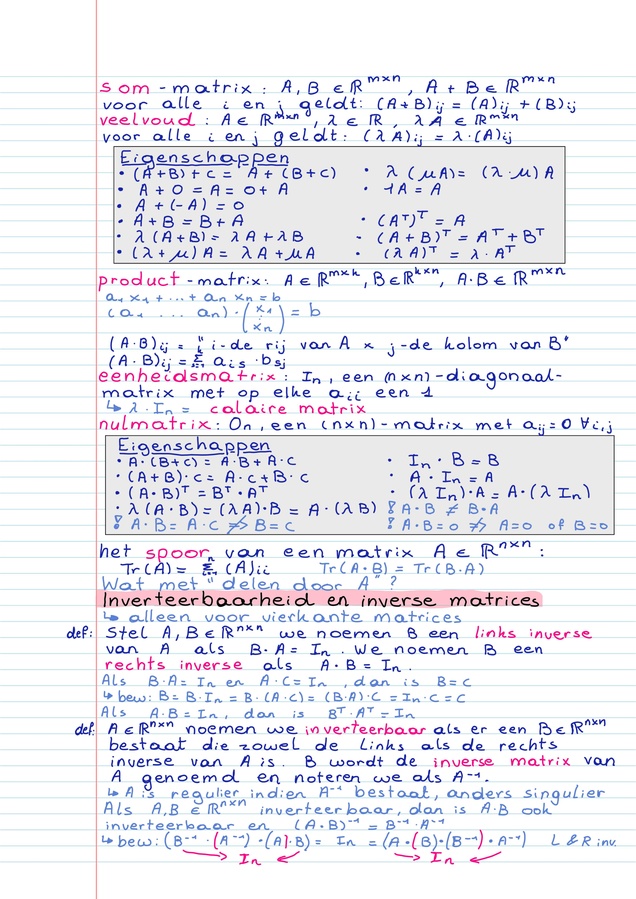 som-matrix: A, B ∈ ℝᵐˣⁿ, A + B ∈ ℝᵐˣⁿ
voor alle i en j geldt: (A+B)ij = (A)ij + (B)ij
veelvoud: A ∈ ℝᵐˣⁿ, λ ∈ ℝ, λA ∈ ℝᵐˣⁿ
voor alle i en j geldt: (λA)ij = λ·(A)ij
Eigenschappen
• (A+B)+C = A+(B+C) • λ(μA) = (λ·μ)A
• A+0 = A = 0+A • 1A = A
• A+(-A) = 0
• A+B = B+A • (Aᵀ)ᵀ = A
• λ(A+B) = λA+λB • (A+B)ᵀ = Aᵀ+Bᵀ
• (λ+μ)A = λA+μA • (λA)ᵀ = λ·Aᵀ
product-matrix: A ∈ ℝᵐˣᵏ, B ∈ ℝᵏˣⁿ, A·B ∈ ℝᵐˣⁿ
a₁x₁ + ... + aₙxₙ = b
(a₁ ... aₙ)·(x₁ ⋮ xₙ) = b
(A·B)ij = "i-de rij van A × j-de kolom van B"
(A·B)ij = Σ ais·bsj
eenheidsmatrix: Iₙ, een (n×n)-diagonaal-
matrix met op elke aii een 1
↳ λ·Iₙ = calaire matrix
nulmatrix: Oₙ, een (n×n)-matrix met aij = 0 ∀i,j
Eigenschappen
• A·(B+C) = A·B+A·C • Iₙ·B = B
• (A+B)·C = A·C+B·C • A·Iₙ = A
• (A·B)ᵀ = Bᵀ·Aᵀ • (λIₙ)·A = A·(λIₙ)
• λ(A·B) = (λA)·B = A·(λB) ! A·B ≠ B·A
! A·B = A·C ⇏ B = C ! A·B = 0 ⇏ A=0 of B=0
het spoor van een matrix A ∈ ℝⁿˣⁿ:
Tr(A) = Σⁿ (A)ii Tr(A·B) = Tr(B·A)
Wat met "delen door A"?
Inverteerbaarheid en inverse matrices
↳ alleen voor vierkante matrices
def: Stel A, B ∈ ℝⁿˣⁿ we noemen B een links inverse
van A als B·A = Iₙ. We noemen B een
rechts inverse als A·B = Iₙ.
Als B·A = Iₙ en A·C = Iₙ, dan is B=C
↳ bew: B = B·Iₙ = B·(A·C) = (B·A)·C = Iₙ·C = C
Als A·B = Iₙ, dan is Bᵀ·Aᵀ = Iₙ
def: A ∈ ℝⁿˣⁿ noemen we inverteerbaar als er een B ∈ ℝⁿˣⁿ
bestaat die zowel de links als de rechts
inverse van A is. B wordt de inverse matrix van
A genoemd en noteren we als A⁻¹.
↳ A is regulier indien A⁻¹ bestaat, anders singulier
Als A, B ∈ ℝⁿˣⁿ inverteerbaar, dan is A·B ook
inverteerbaar en (A·B)⁻¹ = B⁻¹·A⁻¹
↳ bew: (B⁻¹·(A⁻¹)·(A)·B) = Iₙ = (A·(B)·(B⁻¹)·A⁻¹) L & R inv.
Iₙ Iₙ